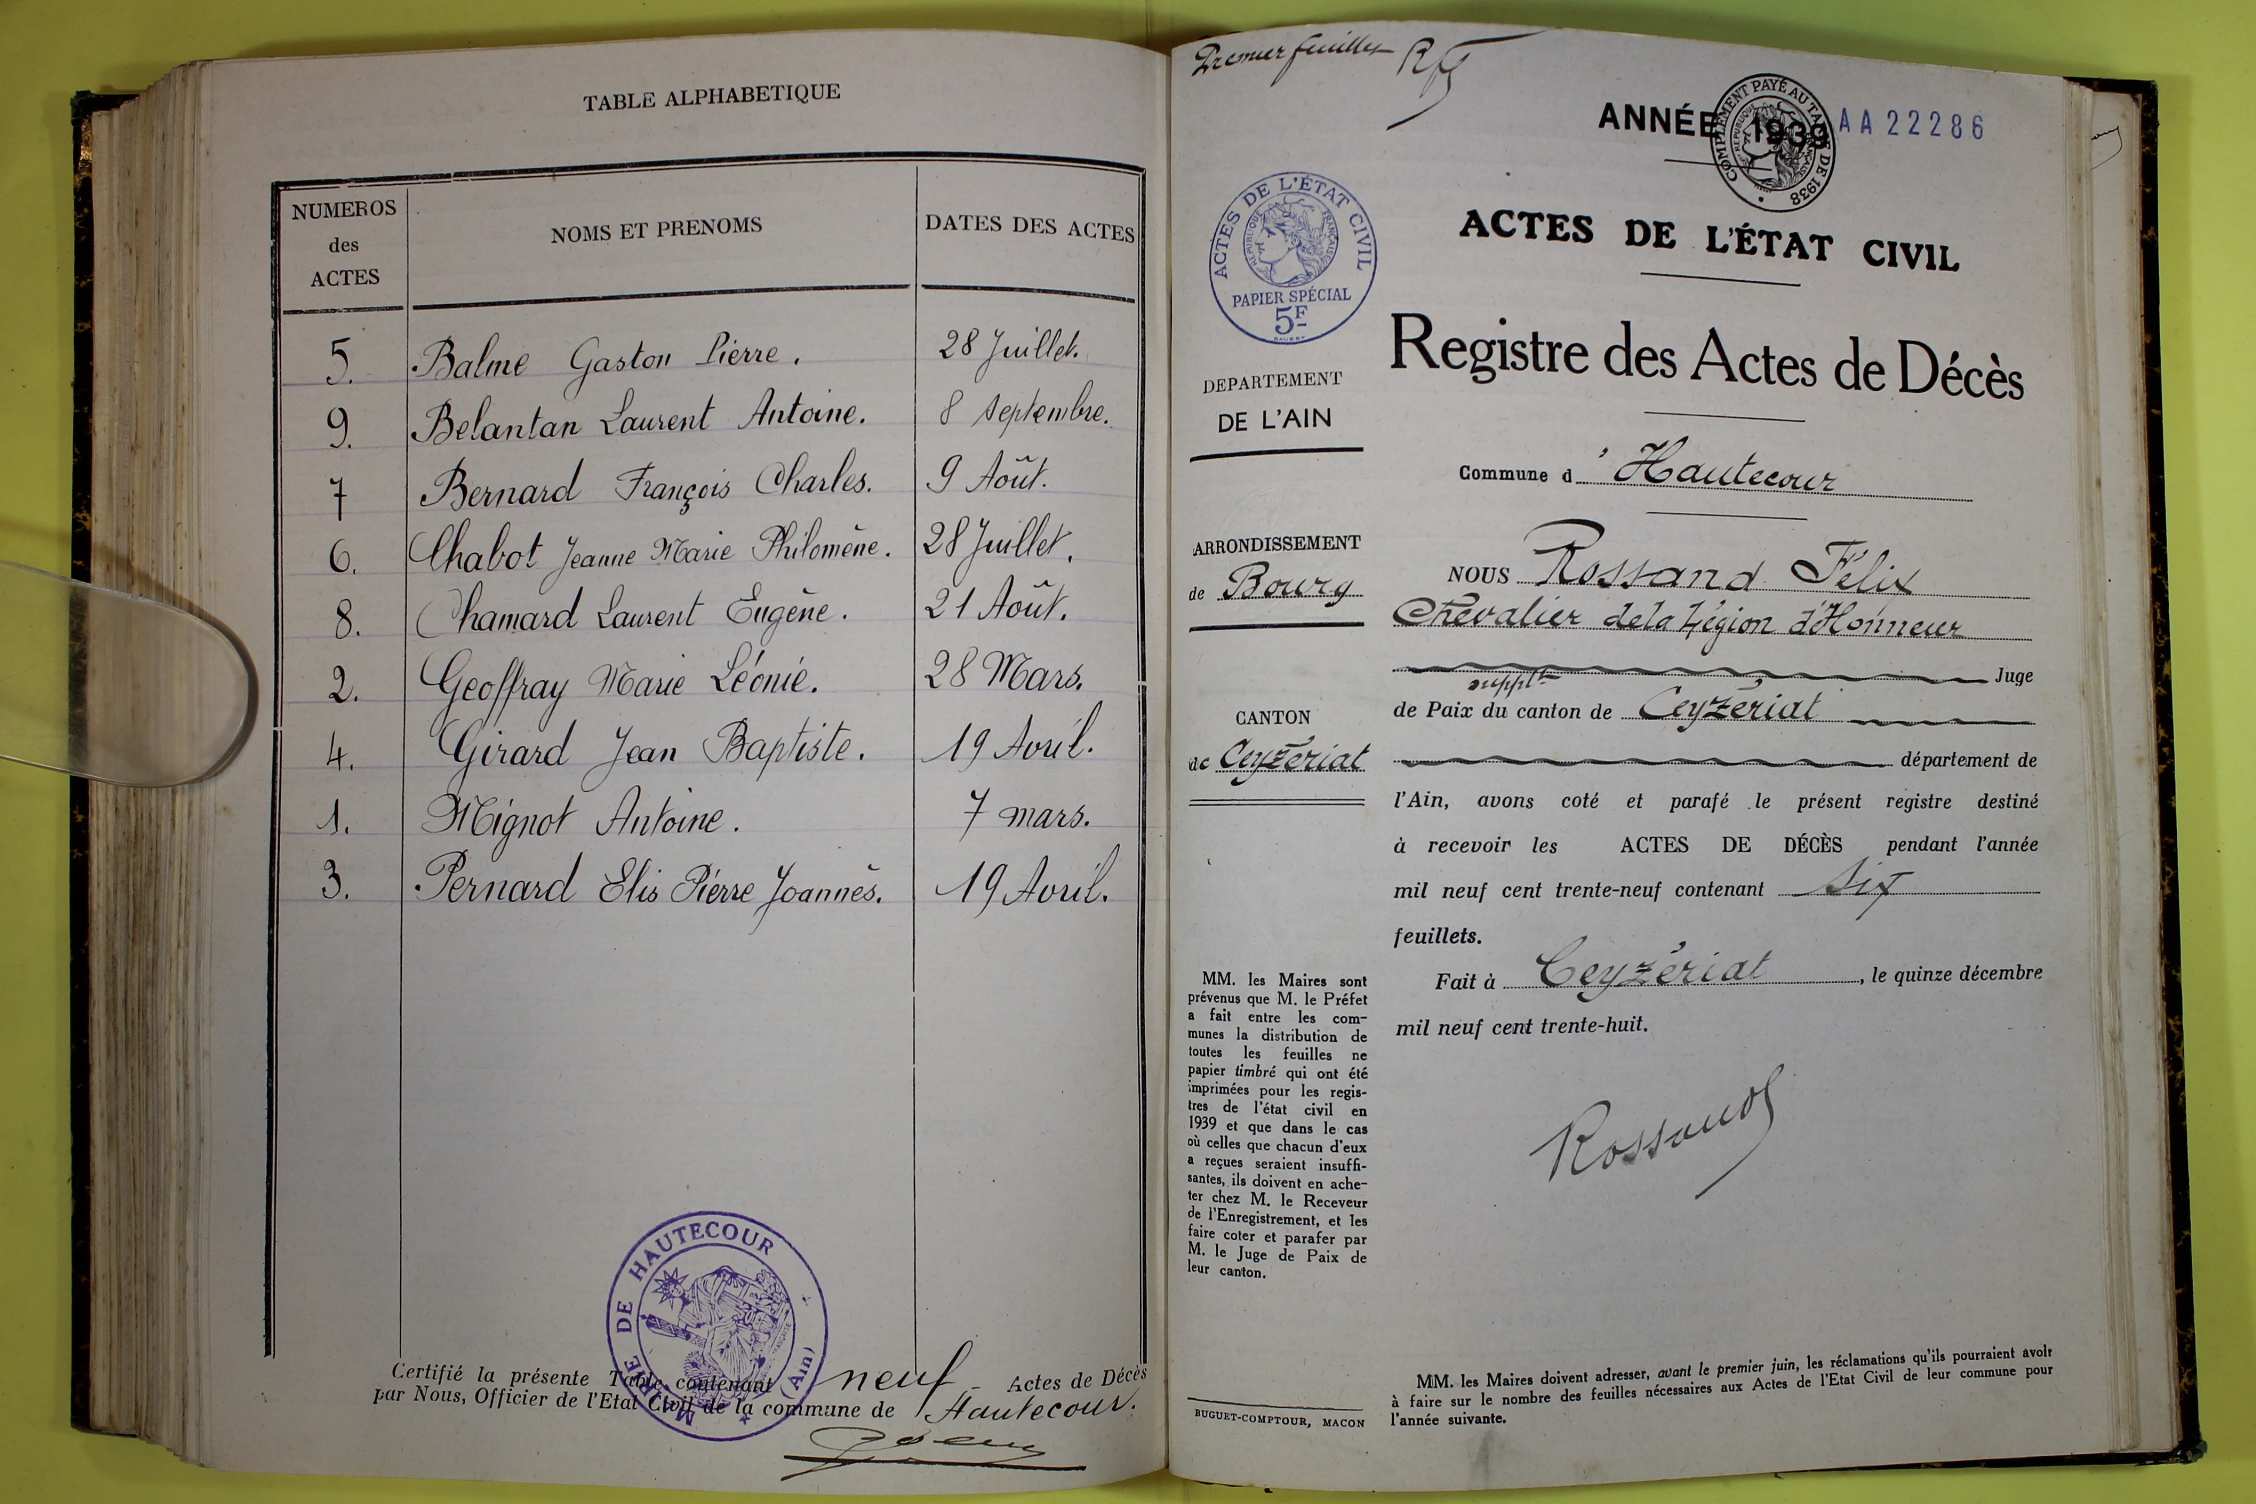 TABLE ALPHABETIQUE
NUMEROS des ACTES | NOMS ET PRENOMS | DATES DES ACTES
5. Balme Gaston Pierre. 28 Juillet.
9. Belantan Laurent Antoine. 8 septembre.
7 Bernard François Charles. 9 Août.
6. Chabot Jeanne Marie Philomène. 28 Juillet.
8. Chamard Laurent Eugène. 21 Août.
2. Geoffray Marie Léonie. 28 Mars.
4. Girard Jean Baptiste. 19 Avril.
1. Mignot Antoine. 7 mars.
3. Pernard Elis Pierre Joannès. 19 Avril.
MAIRIE DE HAUTECOUR (Ain)
Certifié la présente Table, contenant neuf Actes de Décès
par Nous, Officier de l'Etat Civil de la commune de Hautecour.
Premier feuillet
ANNÉE 1939
COMPLÉMENT PAYÉ AU TARIF DE 1938
AA 22286
ACTES DE L'ÉTAT CIVIL
RÉPUBLIQUE FRANÇAISE
PAPIER SPÉCIAL
5F
ACTES DE L'ÉTAT CIVIL
Registre des Actes de Décès
DEPARTEMENT
DE L'AIN
ARRONDISSEMENT
de Bourg
CANTON
de Ceyzériat
MM. les Maires sont
prévenus que M. le Préfet
a fait entre les com-
munes la distribution de
toutes les feuilles ne
papier timbré qui ont été
imprimées pour les regis-
tres de l'état civil en
1939 et que dans le cas
où celles que chacun d'eux
a reçues seraient insuffi-
santes, ils doivent en ache-
ter chez M. le Receveur
de l'Enregistrement, et les
faire coter et parafer par
M. le Juge de Paix de
leur canton.
BUGUET-COMPTOUR, MACON
Commune d'Hautecour
NOUS Rossand Félix
Chevalier de la Légion d'Honneur
Juge
supplt
de Paix du canton de Ceyzériat
département de
l'Ain, avons coté et parafé le présent registre destiné
à recevoir les ACTES DE DÉCÈS pendant l'année
mil neuf cent trente-neuf contenant six
feuillets.
Fait à Ceyzériat, le quinze décembre
mil neuf cent trente-huit.
Rossand
MM. les Maires doivent adresser, avant le premier juin, les réclamations qu'ils pourraient avoir
à faire sur le nombre des feuilles nécessaires aux Actes de l'Etat Civil de leur commune pour
l'année suivante.